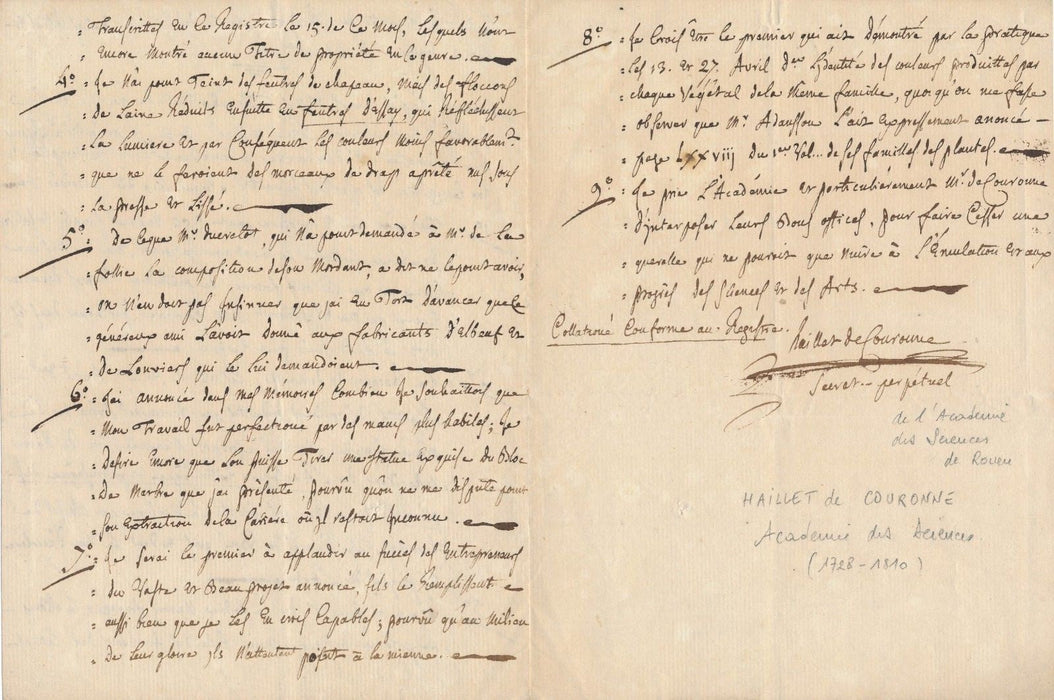 = Transcrittes en le Registre le 15. de ce Mois, lesquels n'ont
Encore Montré aucun Titre de propriété en ce genre.
4.° = Je n'ai point Teint des feutres de chapeau, Mais des floccons
= De Laine Réduits Ensuitte en feutres D'Essay, qui Réfléchissent
= La Lumiere Et par Conséquent Les couleurs Moins favorablem.t
= que ne le feroient des morceaux de drap apreté mis sous
= La presse et Lissé.
5.° = De ce que M.r , qui n'a point demandé à M.r de La
= follie La composition de son Mordant, a dit ne le point avoir,
= on n'en doit pas insinuer que j'ai eu Tort D'avancer que Ce
= généreux ami L'avoit Donné aux fabricants D'Elbeuf Et
= De Louviers qui le lui demandoient.
6.° = J'ai annoncé dans mes Mémoires Combien Je souhaittois que
= Mon Travail fut perfectioné par des mains plus habiles; Je
= Désire Encore que l'on puisse Tirer une Statue Exquise du Bloc
= De Marbre que j'ai présenté, pourvû qu'on ne me dispute point
= Son Extraction de la Cariere où il restoit Inconnu.
7.° = Je serai le premier à applaudir au succès des Entrepreneurs
= Du Vaste et Beau projet annoncé, s'ils le Remplissent
= aussi bien que je les En crois Capables; pourvû qu'au Milieu
= De leur gloire ils n'attentent point à la mienne.
8.° = Je Crois Etre le premier qui ait Démontré par la pratique
= Les 13. et 27. Avril L'identité des couleurs produittes par
= chaque Végétal de la Même famille, quoi qu'on me fasse
= observer que M.r Adansson L'ait Expressement anoncé –
= page LXXViij Du 1er Vol... de ses familles des plantes.
9.° = Je prie L'Académie et particulièrement M.r de Couronne
= D'interposer Leurs Bons offices, pour faire Cesser une
= querelle qui ne pouroit que Nuire à l'Emulation et aux
= progrès des Sciences et des Arts.
Collationé Conforme au Registre.
haillet de Couronne
Secret.. perpétuel
de l'Académie
des Sciences
de Rouen
HAILLET de COURONNE
Académie des Sciences
(1728 - 1810)